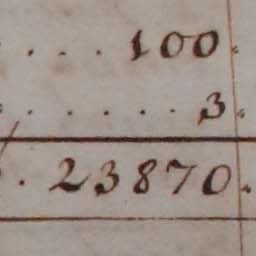 . . . 100.
. . . . . . 3.
. 23870.